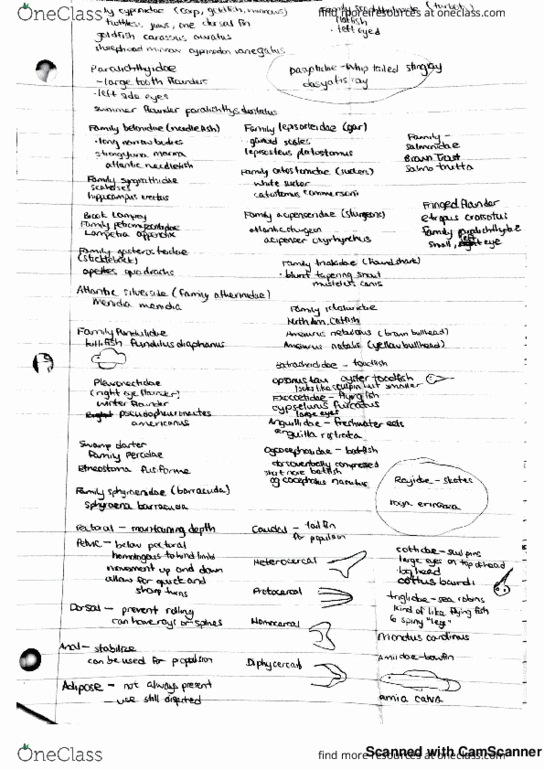 OneClass
find more resources at oneclass.com
family cyprinidae (carp, goldfish, minnows)
toothless jaws, one dorsal fin
goldfish carassus auratus
sheepshead minnow cyprinodon variegatus
flatfish
• left eyed
Paralichthyidae
- large tooth flounders
• left side eyes
summer flounder paralichthys dentatus
dasyatidae - whip tailed stingray
dasyatis ray
Family belonidae (needlefish)
• long narrow bodies
strongylura marina
atlantic needlefish
Family lepisosteidae (gar)
• ganoid scales
lepisosteus platostomus
Family -
salmonidae
Brown Trout
Salmo trutta
Family syngnathidae
seahorses
hippocampus erectus
Family catostomidae (suckers)
white sucker
catostomus commersonii
Brook Lamprey
Family petromyzontidae
Lampetra appendix
Family acipenseridae (sturgeons)
atlantic sturgeon
acipenser oxyrhynchus
Fringed flounder
etropus crossotus
Family paralichthyidae
small, left eye
Family gasterosteidae
(stickleback)
apeltes quadracus
Family triakidae (houndshark)
• blunt tapering snout
mustelus canis
Atlantic silverside (Family atherinidae)
Menidia menidia
Family Ictaluridae
North Am. Catfish
Ameiurus nebulosus (brown bullhead)
Ameiurus natalis (yellow bullhead)
Family Fundulidae
killifish fundulus diaphanus
batrachoididae - toadfish
opsanus tau oyster toadfish
looks like sculpin but smaller
Pleuronectidae
(right eye flounder)
winter flounder
pseudopleuronectes
americanus
Exocoetidae - flying fish
cypselurus furcatus
large eyes
Anguillidae - freshwater eels
anguilla rostrata
Swamp darter
Family Percidae
Etheostoma fusiforme
Ogcocephalidae - batfish
dorsoventrally compressed
short nose batfish
ogcocephalus nasutus
Rajidae - skates
raja erinacea
Family sphyraenidae (barracuda)
Sphyraena barracuda
Pectoral - maintaining depth
Pelvic - below pectoral
homologous to hind limbs
movement up and down
allows for quick and
sharp turns
Caudal - tail fin
for propulsion
Heterocercal
Protocercal
Homocercal
Diphycercal
cottidae - sculpins
large eyes on top of head
big head
cottus bairdi
triglidae - sea robins
kind of like flying fish
6 spiny "legs"
Prionotus carolinus
Dorsal - prevent rolling
can have rays or spines
Anal - stabilize
can be used for propulsion
Adipose - not always present
- use still disputed
Amiidae - bowfin
amia calva
Scanned with CamScanner
OneClass
find more resources at oneclass.com